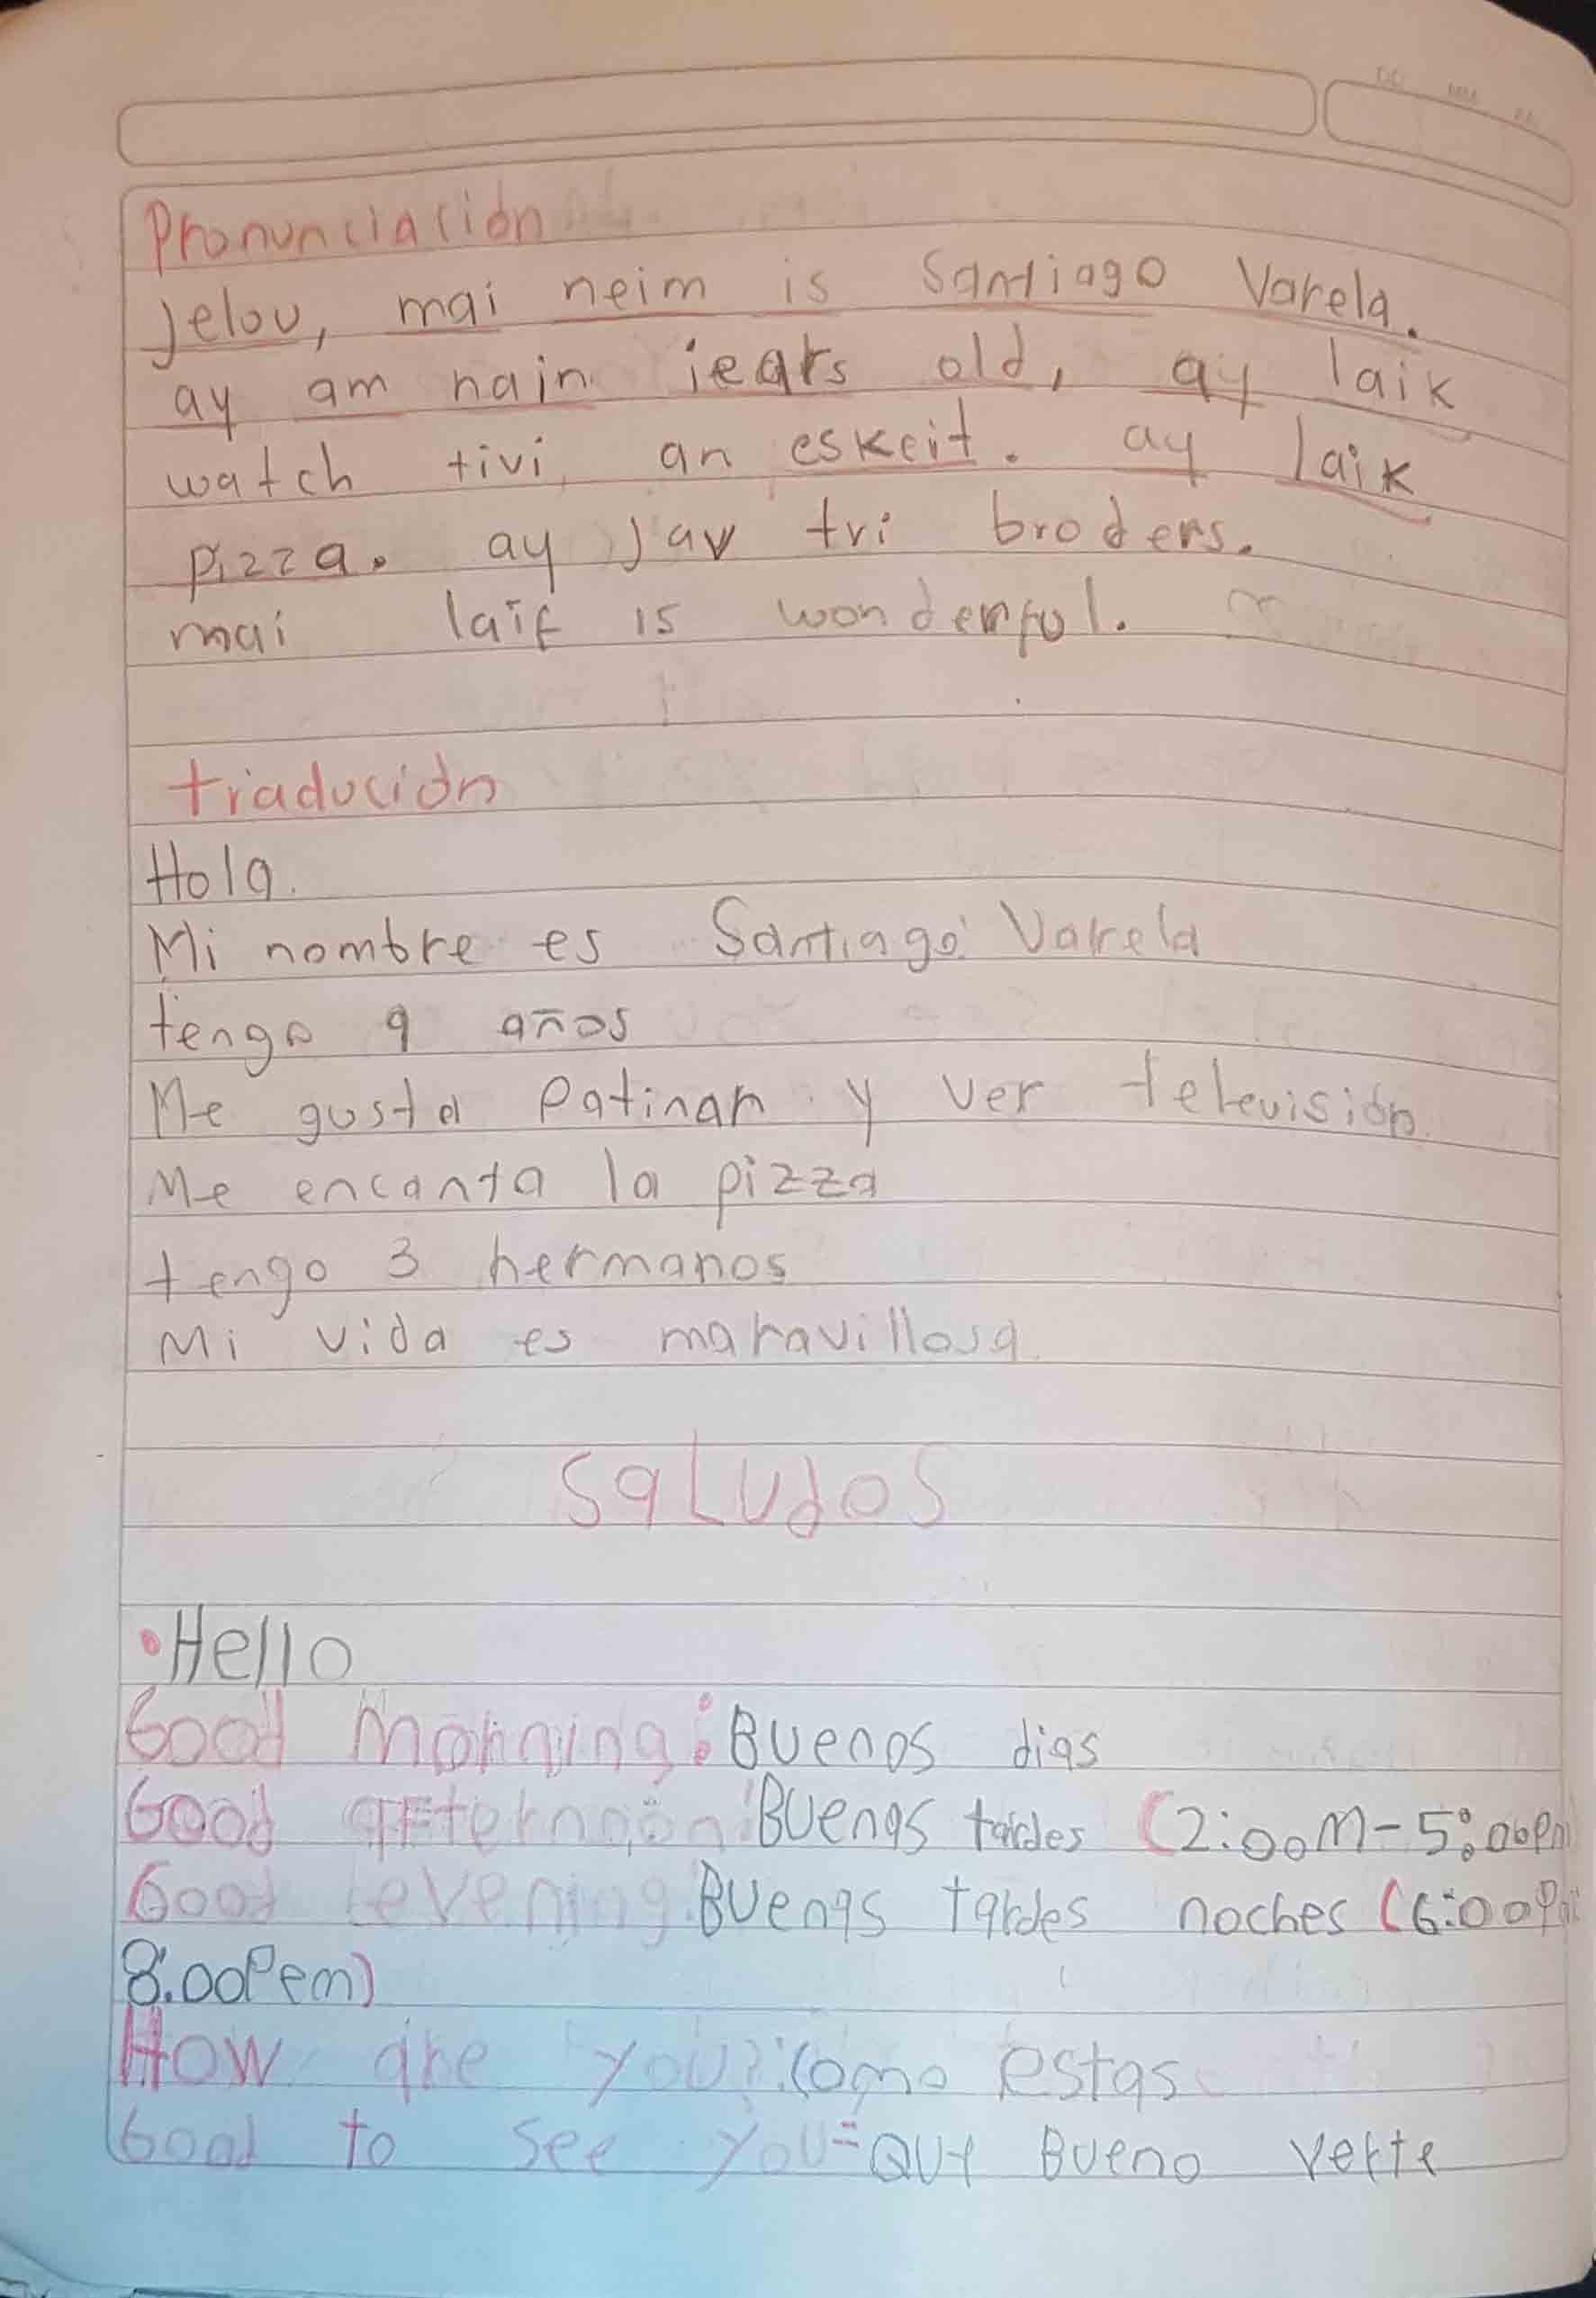 Pronunciación
jelou, mai neim is Santiago Varela.
ay am nain iears old, ay laik
watch tivi an eskeit. ay laik
pizza. ay jav tri broders.
mai laif is wonderful.
tradución
Hola.
Mi nombre es Santiago Varela
tengo 9 años
Me gusta Patinar y ver televisión.
Me encanta la pizza
tengo 3 hermanos
Mi vida es maravillosa.
SaLudos
•Hello
Good Morning: Buenos dias
Good aFternoon: Buenas tardes (2:00M-5:00Pm
Good evening: Buenas tardes noches (6:00Pm
8:00Pem)
How are you?: como estas
Good to see you= Que Bueno verte